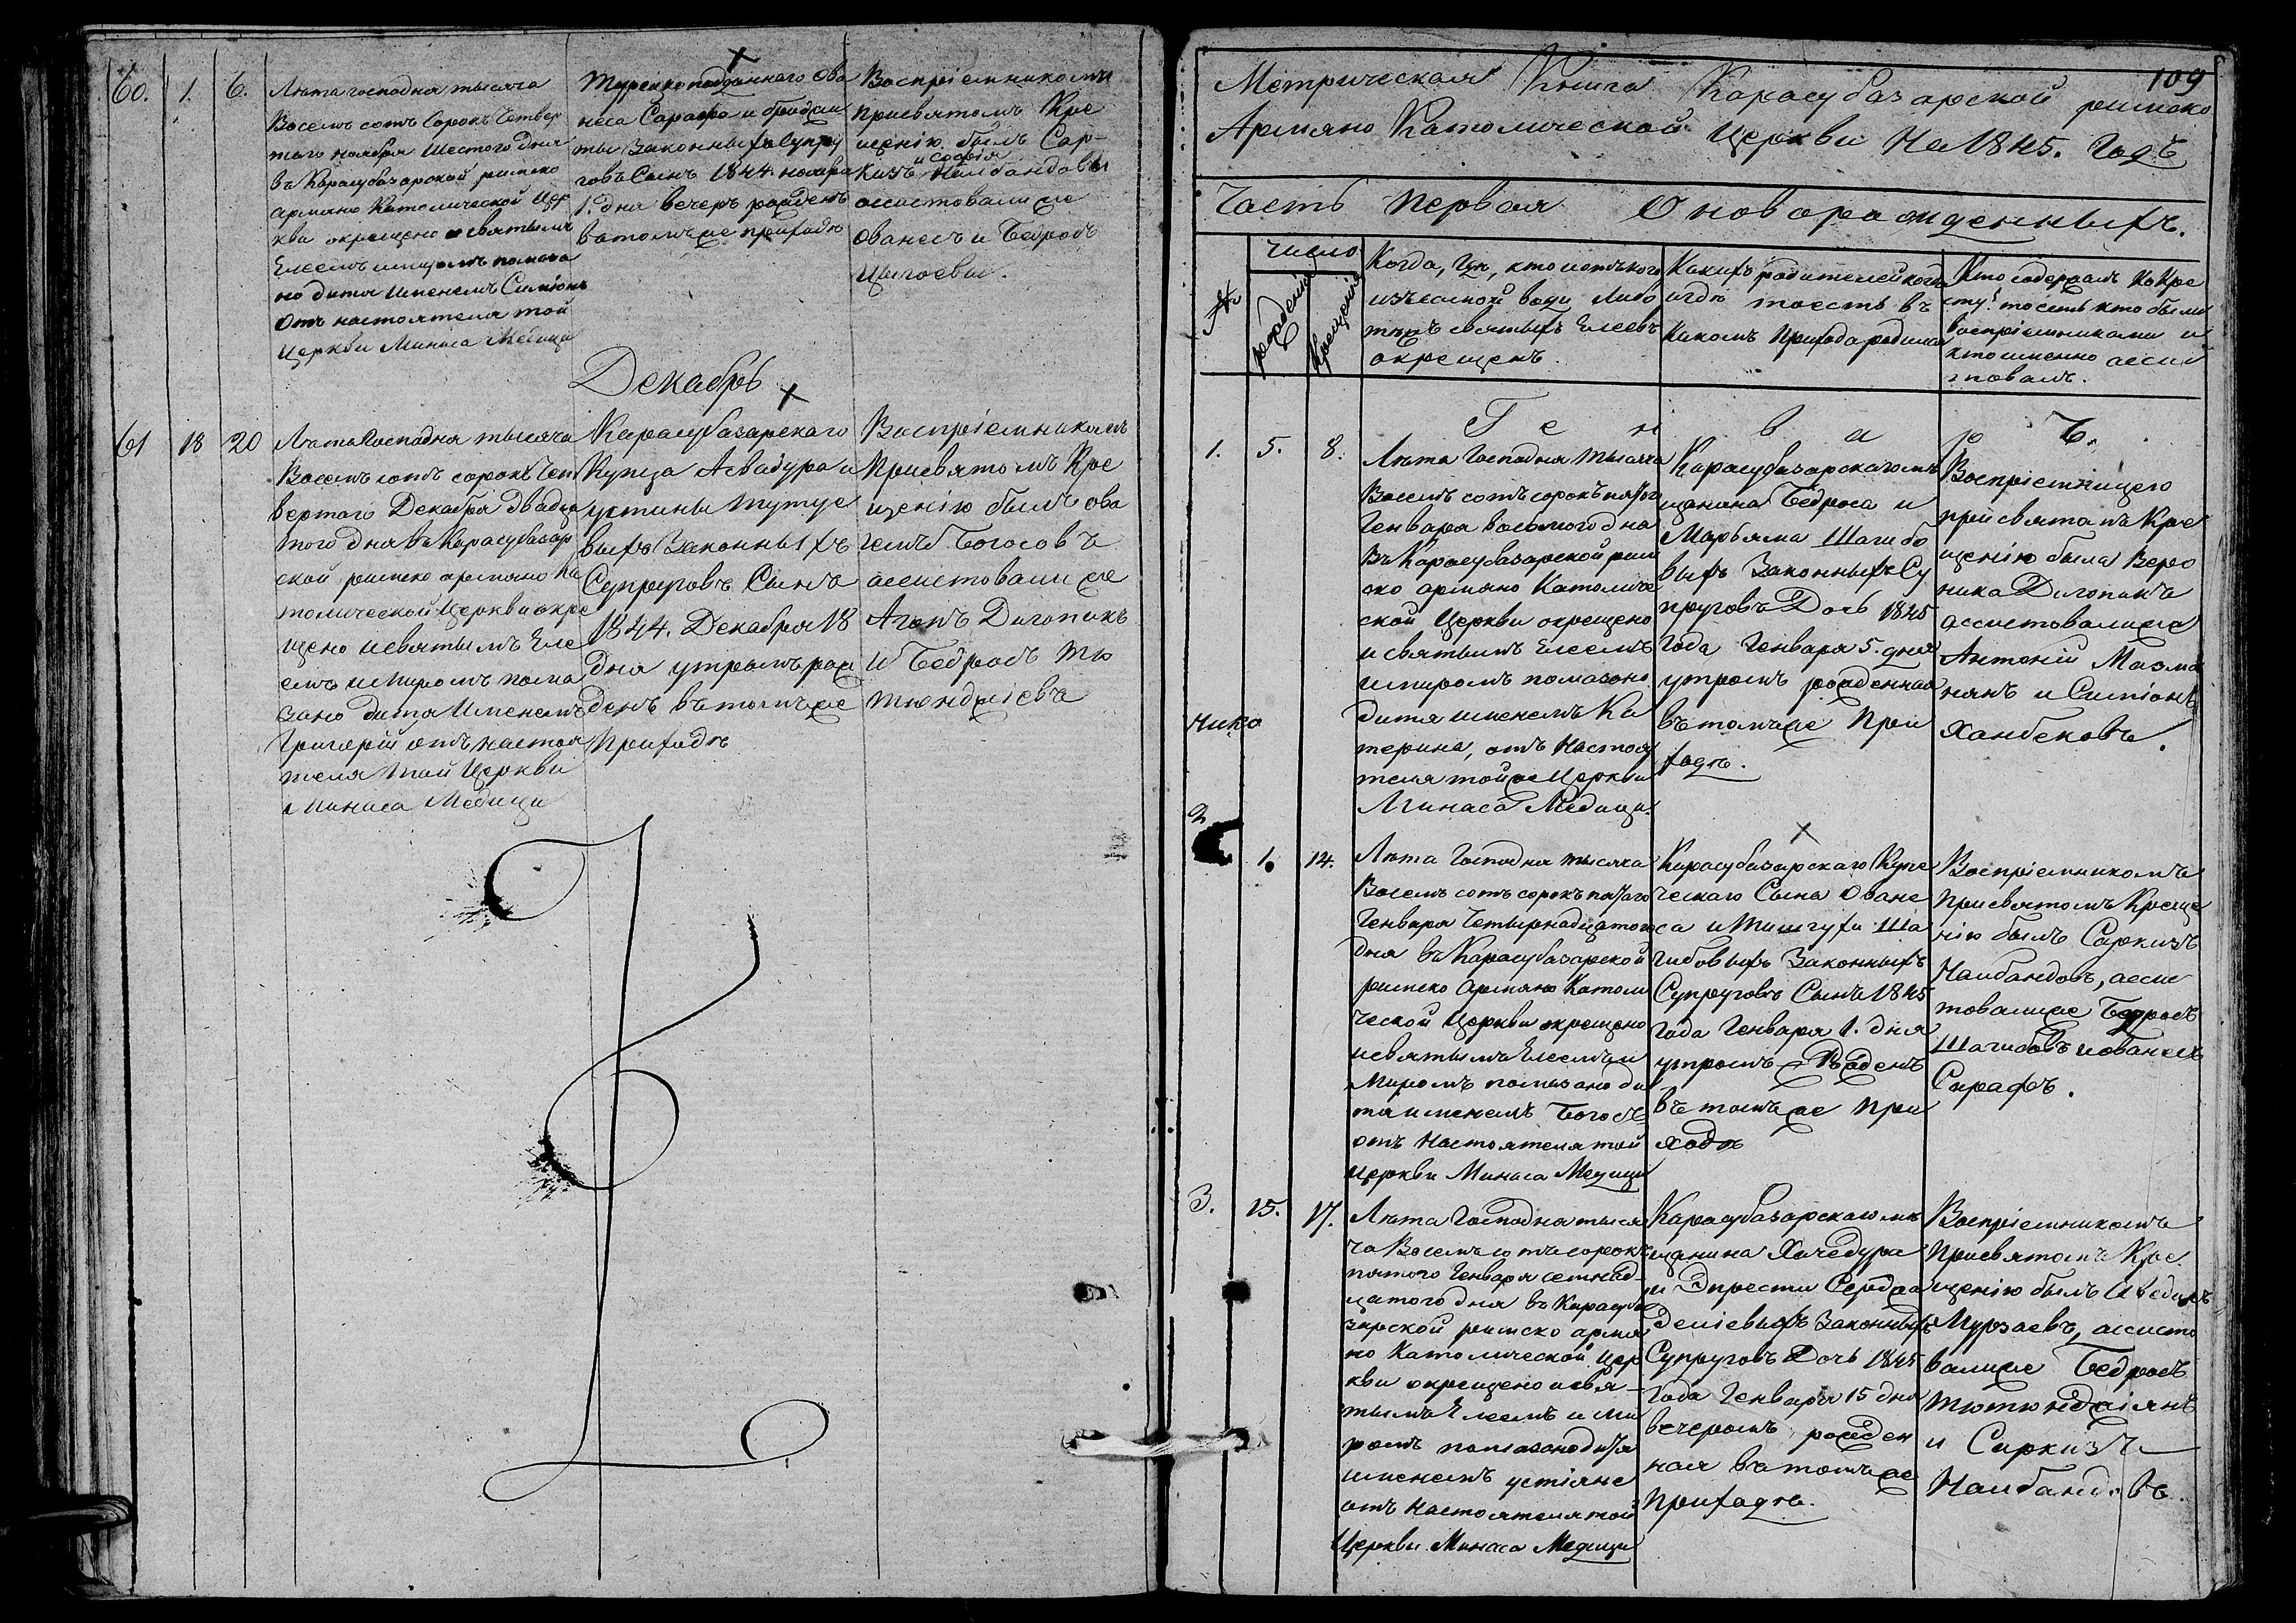 60. 1. 6.
Лѣта господня тысяча
Восемъ сотъ Сорокъ Четвер
таго ноября Шестого дня
въ Карасубазарской римско
армяно Католической Цер
кви окрещено и святымъ
Елеемъ и миромъ помаза
но дитя именемъ Симіонъ
Отъ настоятеля той
Церкви Минаса Медици
Турецкоподданнаго Ова
неса Сарафа и
ты Законныхъ Супру
говъ Сынъ 1844. ноября
1. дня вечеръ рожденъ
в томъ же приходѣ
Воспріемникомъ
присвятомъ Кре
щенію былъ Сар-
и Софія
кизъ Налбандовы
ассистовали же
Ованесъ и Бедросъ
Декабрь
61 18 20
Лѣта Господня тысяча
Восемъ сотъ сорокъ Чет
вертаго Декабря Двадца
того дня въ Карасубазар
ской римско армяно Ка
толической Церкви окре
щено и святымъ Еле
емъ и Миромъ пома
зано дитя Именемъ
Григорій отъ настоя
теля той Церкви
Минаса Медици
Карасубазарскаго
Купца Асвадура и
устины Тутуе
выхъ Законныхъ
Супруговъ Сынъ
1844. Декабря 18
дня утромъ рож
денъ въ томъ же
Приходѣ
Воспріемникомъ
Присвятомъ Кре
щенію былъ Ова
несъ Богосовъ
ассистовали же
Агопъ Дигопикъ
и Бедросъ Тю
тюнджіевъ
109
Метрическая Книга Карасубазарской римско
Армяно Католической Церкви На 1845. Годъ
Часть Первая О новорожденныхъ.
№
Число
рожденія
Крещенія
Когда, Гдѣ, кто и отъ кого
изъ самой воды либо
тѣхъ святыхъ Елеевъ
окрещенъ.
Какихъ родителей когда
и гдѣ то есть въ
Какомъ Прихода родился
Кто содержалъ ко Кре
сту? то есть кто были
воспріемниками и
кто именно асси
товалъ.
Генварь.
1. 5. 8.
Лѣта Господня тысяча
Восемъ сотъ сорокъ пятого
Генваря восьмого дня
Въ Карасубазарской рим
ско армяно Католиче
ской Церкви окрещено
и святымъ Елеемъ
и миромъ помазоно
дитя именемъ Ка
терина, отъ Настоя
теля той же Церкви
Минаса Медици.
Карасубазарскаго мѣ
щанина Бедроса и
Марьяма Шагибо
выхъ Законныхъ Су
пруговъ Дочь 1845
года Генваря 5. дня
утромъ рожденная
въ томъ же При
ходѣ.
Воспріемницею
при святомъ Кре
щенію была Веро
ника Дигопикъ
ассистовали же
Антоній Мазма
нянъ и Симіонъ
Ханбековъ.
2 1. 14.
Лѣта Господня тысяча
Восемъ сотъ сорокъ пятаго
Генваря Четырнадцатого
дня въ Карасубазарской
римско Армяно Католи
ческой Церкви окрещено
и святымъ Елеемъ и
Миромъ помазано ди
тя именемъ Богосъ
отъ Настоятеля той
Церкви Минаса Медици
Карасубазарскаго Купе
ческаго Сына Оване
са и Ша
гибовыхъ Законныхъ
Супруговъ Сынъ 1845
года Генваря 1. дня
утромъ Рожденъ
въ томъ же При
ходѣ
Воспріемникомъ
При святомъ Креще
нію былъ Саркизъ
Налбандовъ, асси
товали же Бедросъ
Шагибовъ и Ованесъ
Сарафъ.
3. 15. 17.
Лѣта Господня тыся
ча Восемъ сотъ сорокъ
пятого Генваря семнад-
цатого дня въ Карасуба
зарской римско армя
но Католической Цер
кви окрещено и свя-
тымъ Елеемъ и ми
ромъ помазано дитя
именемъ устіяне
отъ Настоятеля той
Церкви Минаса Медици
Карасубазарскаго мѣ
щанина Хачедура
и
Законныхъ
Супруговъ Дочь 1845
Года Генваря 15 дня
вечеромъ рожден
ная въ томъ же
Приходѣ.
Воспріемникомъ
Присвятомъ Кре
щенію былъ Аведикъ
Мурзаевъ, ассисто
вали же Бедросъ
Тютюнджіянъ
и Саркизъ
Налбандовъ.